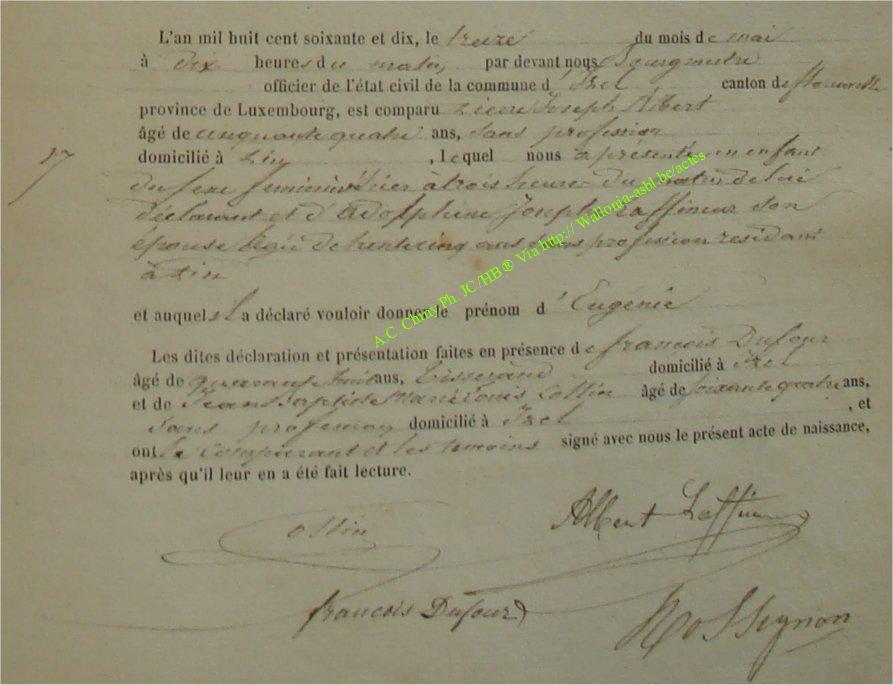 L'an mil huit cent soixante et dix, le treize du mois de mai
à dix heures du matin, par devant nous Bourgmestre
officier de l'état civil de la commune d'Izel canton de florenville
province de Luxembourg, est comparu Pierre Joseph Albert
âgé de cinquante quatre ans, sans profession
domicilié à , lequel nous a présenté un enfant
17
du sexe feminin né hier à trois heures du matin, de lui
déclarant et d'Adolphine Joseph Laffineur son
épouse agée de trente cinq ans sans profession residant
à
et auquel il a déclaré vouloir donner le prénom d'Eugénie
Les dites déclaration et présentation faites en présence de françois Dufour
âgé de quarante huit ans, tisserand domicilié à Izel
et de Jean Baptiste Marie Louis Collin âgé de soixante quatre ans,
sans profession domicilié à Izel , et
ont le comparant et les temoins signé avec nous le présent acte de naissance,
après qu'il leur en a été fait lecture.
A.C. Chiny Ph. JC/HB ® Via http:// Wallonia-asbl be/actes
Albert Laffineur
francois Dufour
Rossignon